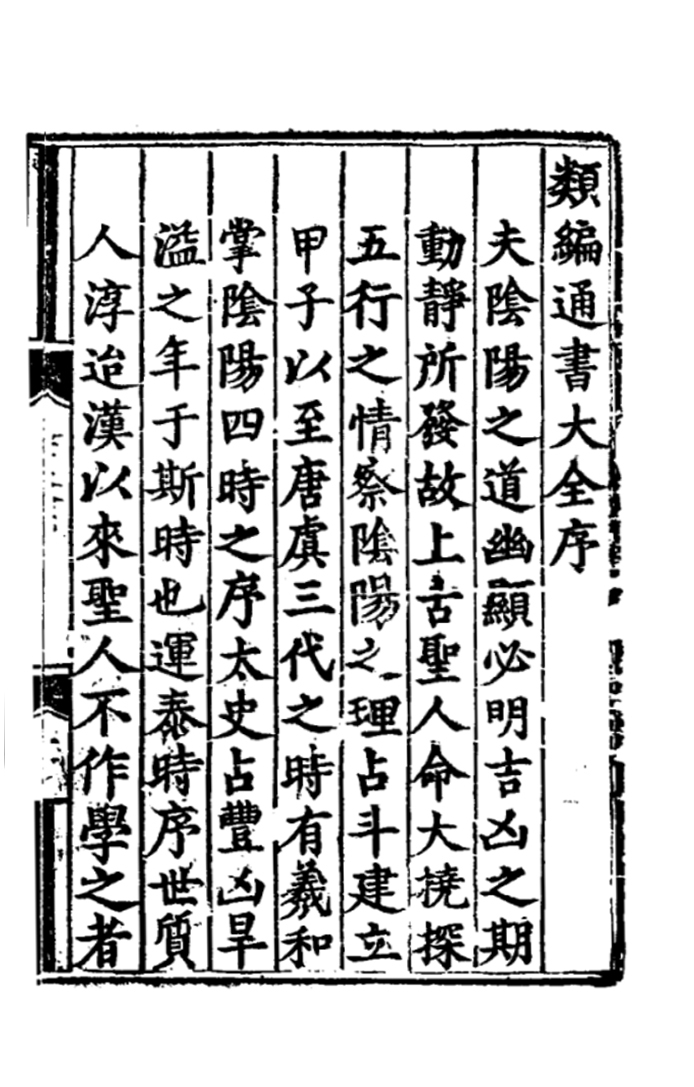 類編通書大全序
夫陰陽之道幽顯必明吉凶之期
動靜所發故上古聖人命大撓探
五行之情察陰陽之理占斗建立
甲子以至唐虞三代之時有羲和
掌陰陽四時之序太史占豊凶旱
溢之年于斯時也運泰時序世質
人淳迨漢以來聖人不作學之者